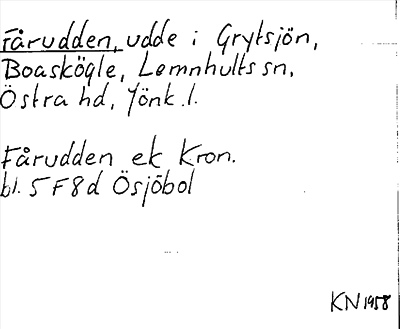 Fårudden, udde i Grytsjön,
Boaskögle, Lemnhults sn,
Östra hd, Jönk. l.
Fårudden ek Kron.
bl. 5F8d Ösjöbol
KN 1958